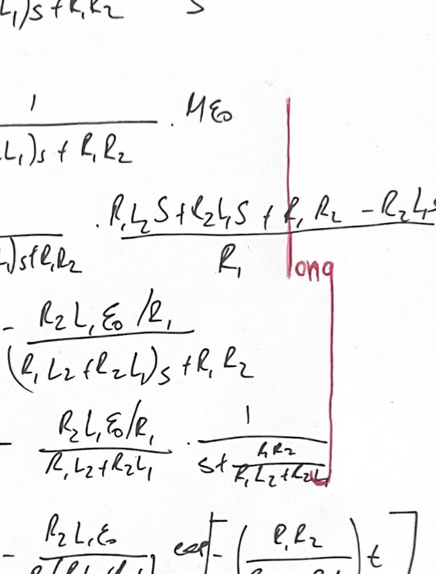 L₁)s + R₁R₂ s
1
L₁)s + R₁R₂ . Mε₀
)s+R₁R₂ . R₁L₂S + R₂L₁S + R₁R₂ - R₂L₁s
R₁ long
- R₂L₁ε₀/R₁
(R₁L₂ + R₂L₁)s + R₁R₂
- R₂L₁ε₀/R₁ . 1
R₁L₂ + R₂L₁ s + R₁R₂
R₁L₂ + R₂L₁
- R₂L₁ε₀ exp[-(R₁R₂)t]